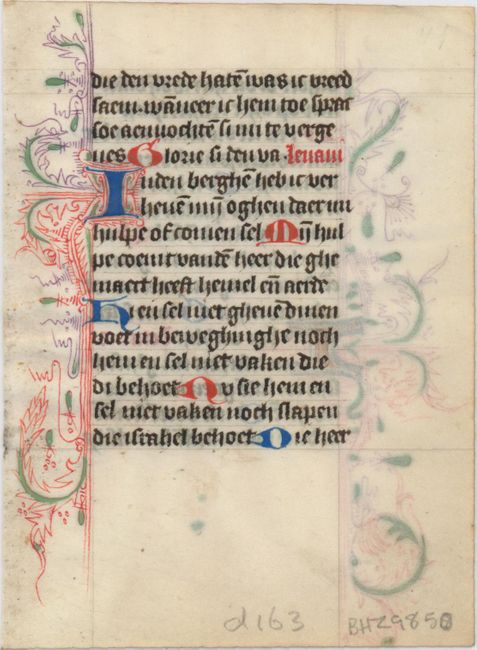 die den vrede hatē was ic vreed
saem. wāneer ic hem toe sprac
soe aenvochtē si mi te verge
ues Glorie si den va. levavi
Inden berghē heb ic ver
hevē mij oghen daer mi
hulpe of comen sel Mij hul
pe coemt vandē heer die ghe
maect heeft hemel eñ aerde
Hi en sel niet ghevē dinen
voet in beweghinghe noch
hem en sel niet vaken die
di behoet Nu sie hem en
sel niet vaken noch slapen
die israhel behoet Die heer
d163
BH29850